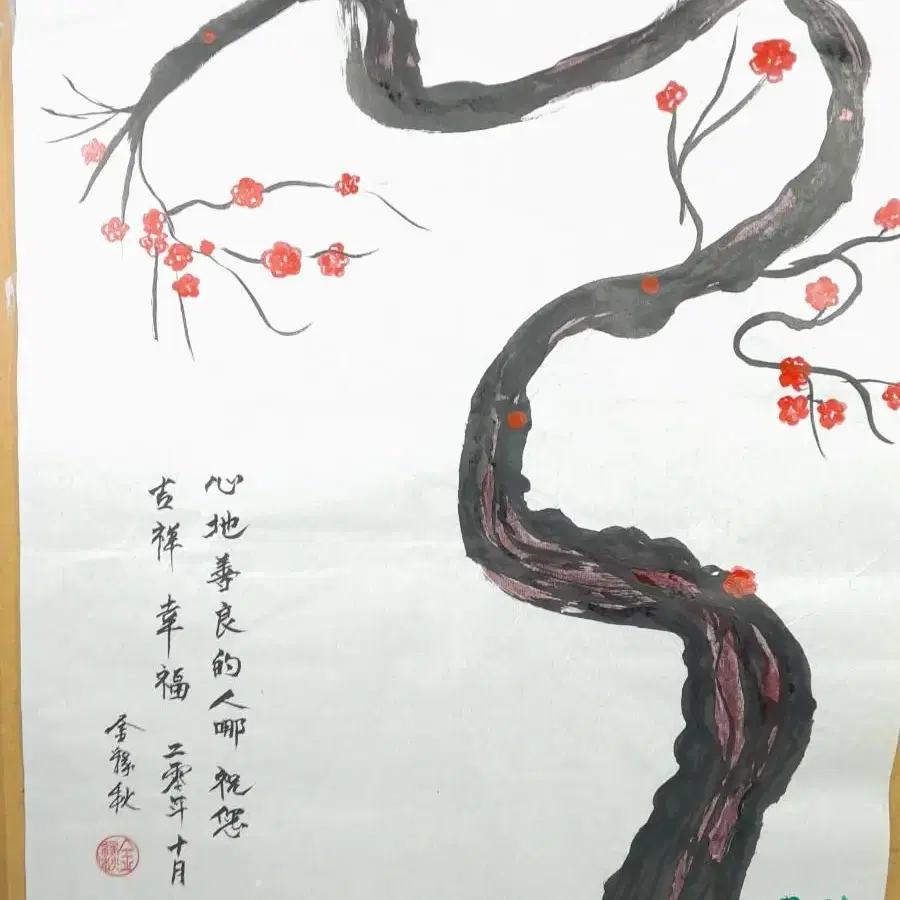 心地善良的人哪 祝您
吉祥 幸福 二零年十月
金稼秋